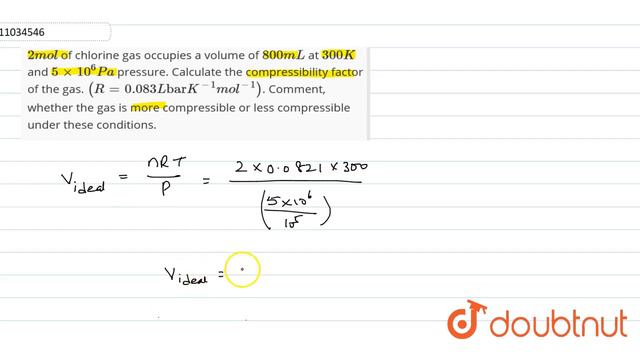 11034546
2mol of chlorine gas occupies a volume of 800mL at 300K
and 5 × 10⁶ Pa pressure. Calculate the compressibility factor
of the gas. (R = 0.083LbarK⁻¹mol⁻¹). Comment,
whether the gas is more compressible or less compressible
under these conditions.
V ideal = nRT/P = 2 × 0.0821 × 300 / (5×10⁶/10⁵)
V ideal =
doubtnut